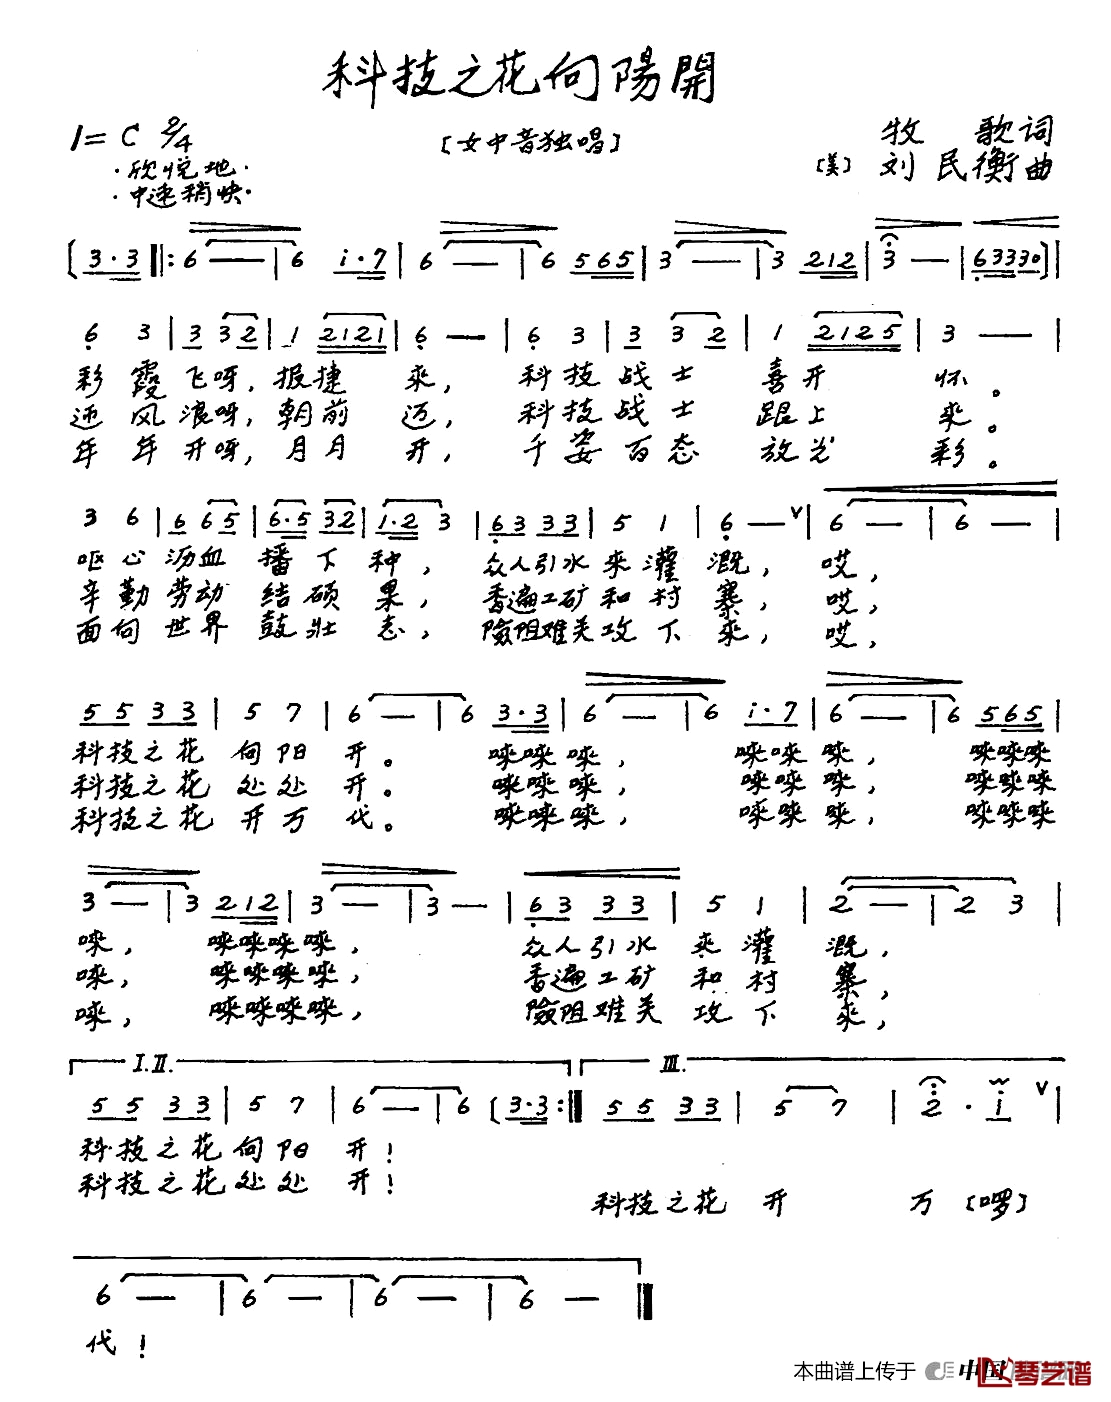 科技之花向陽開
1=C 2/4
〔女中音独唱〕
牧 歌词
·欣悦地·
〔美〕刘民衡曲
·中速稍快·
〔3·3 ‖: 6 — | 6 i·7 | 6 — | 6 565 | 3 — | 3 212 | 3 — | 63330〕|
6 3 | 3 32 | 1 2121 | 6 — | 6 3 | 3 3 2 | 1 2125 | 3 — |
彩霞飞呀,报捷来,科技战士喜开怀。
迎风浪呀,朝前迈,科技战士跟上来。
年年开呀,月月开,千姿百态放光彩。
3 6 | 6 65 | 6·5 32 | 1·2 3 | 63 33 | 5 1 | 6 — ∨ | 6 — | 6 — |
呕心沥血播下种,众人引水来灌溉,哎,
辛勤劳动结硕果,香遍工矿和村寨,哎,
面向世界鼓壮志,險阻难关攻下来,哎,
55 33 | 5 7 | 6 — | 6 3·3 | 6 — | 6 i·7 | 6 — | 6 565 |
科技之花向阳开。唻唻唻,唻唻唻,唻唻唻
科技之花处处开。唻唻唻,唻唻唻,唻唻唻
科技之花开万代。唻唻唻,唻唻唻,唻唻唻
3 — | 3 212 | 3 — | 3 — | 63 33 | 5 1 | 2 — | 2 3 |
唻,唻唻唻唻,众人引水来灌溉,
唻,唻唻唻唻,香遍工矿和村寨,
唻,唻唻唻唻,險阻难关攻下来,
I.II. III.
55 33 | 5 7 | 6 — | 6 〔3·3 :‖ 55 33 | 5 7 | 2·i ∨ |
科技之花向阳开!
科技之花处处开!
科技之花开万〔啰〕
6 — | 6 — | 6 — | 6 — ‖
代!
本曲谱上传于 中国
琴艺谱